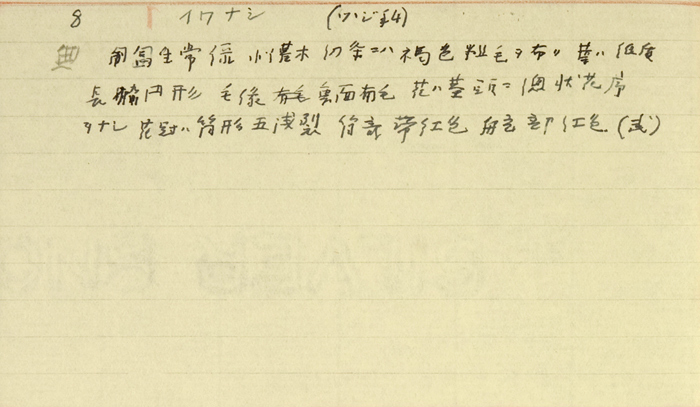 8 イワナシ (ツ、ジ科)
典 匍匐生常緑小灌木 幼条ニハ褐色粗毛ヲ布ク 葉ハ 質
長楕円形 毛縁 有毛 裏面有毛 花ハ茎頭ニ総状花序
ヲナシ 花冠ハ筒形五浅裂 帯紅色 部紅色 (武)